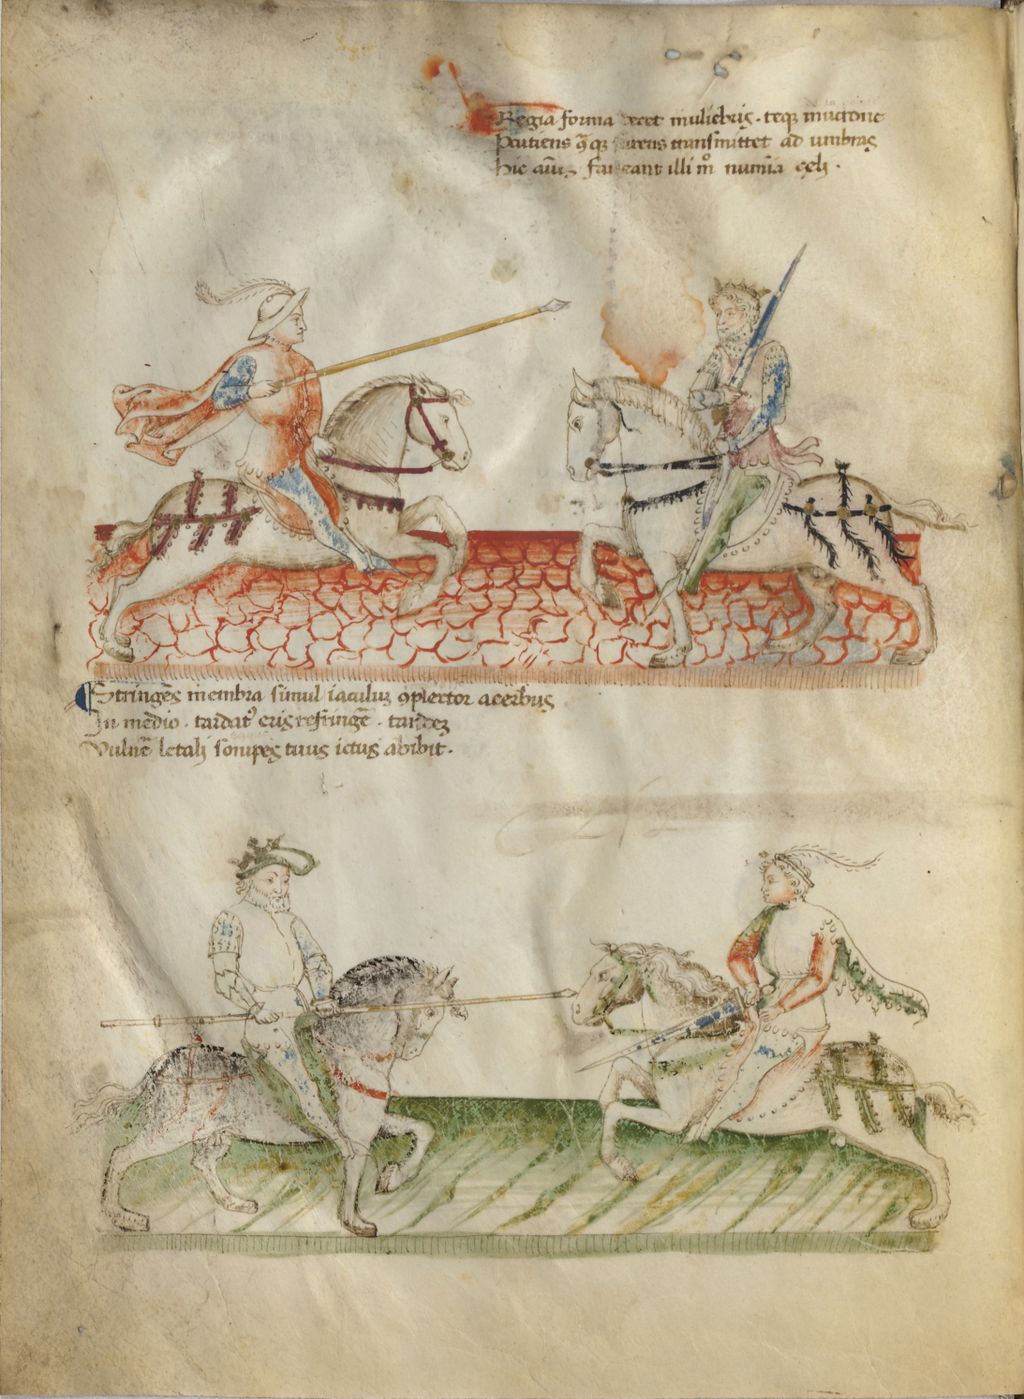 Regia forma decet muliebris . teq3 mucrone
Percutiens q̄ q3 parens transmittet ad umbras
Hic aūu3 faueant illi m̊ numīa cęli .
Stringēs membra simul iaculu3 9plector acerbu3
In medio . tardat᾽ cris refringē᷒ . tardes
Vulnē letali sonipes tuus ictus abibit .